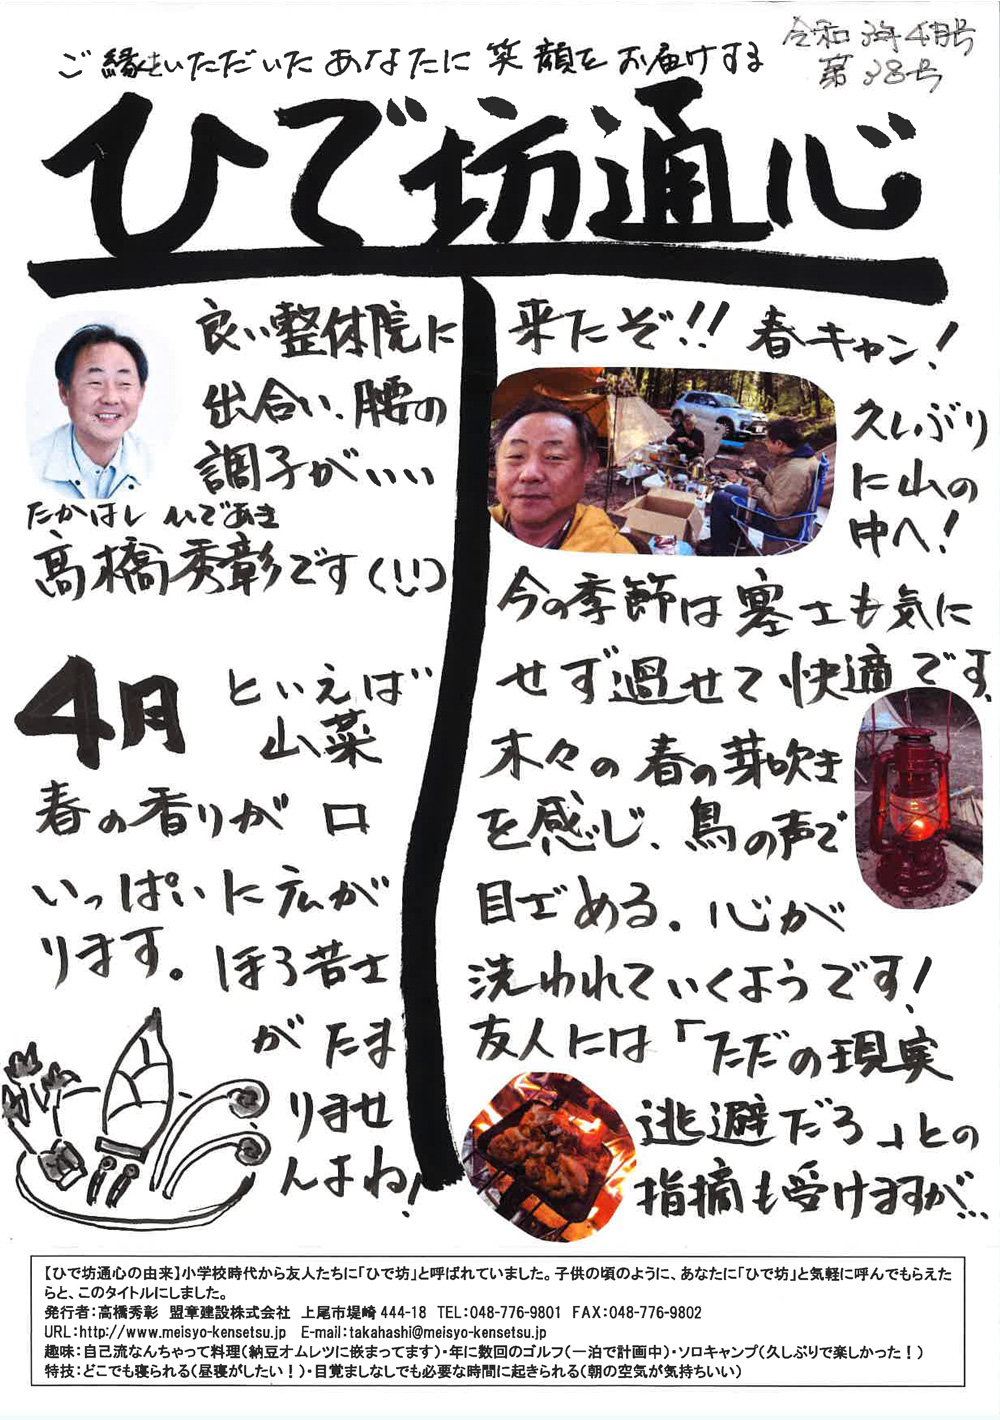 ご縁をいただいたあなたに笑顔をお届けする
令和3年4月号
第38号
ひで坊通心
良い整体院に
出合い、腰の
調子がいい
たかはし ひであき
高橋秀彰です(!!)
4月といえば
山菜
春の香りが口
いっぱいに広が
ります。ほろ苦さ
がたま
りませ
んよね!
来たぞ!! 春キャン!
久しぶり
に山の
中へ!
今の季節は寒さも気に
せず過せて快適です。
木々の春の芽吹き
を感じ、鳥の声で
目ざめる。心が
洗われていくようです!
友人には「ただの現実
逃避だろ」との
指摘も受けますが…
【ひで坊通心の由来】小学校時代から友人たちに「ひで坊」と呼ばれていました。子供の頃のように、あなたに「ひで坊」と気軽に呼んでもらえた
らと、このタイトルにしました。
発行者:高橋秀彰 盟章建設株式会社 上尾市堤崎444-18 TEL:048-776-9801 FAX:048-776-9802
URL:http://www.meisyo-kensetsu.jp E-mail:takahashi@meisyo-kensetsu.jp
趣味:自己流なんちゃって料理(納豆オムレツに嵌まってます)・年に数回のゴルフ(一泊で計画中)・ソロキャンプ(久しぶりで楽しかった!)
特技:どこでも寝られる(昼寝がしたい!)・目覚ましなしでも必要な時間に起きられる(朝の空気が気持ちいい)